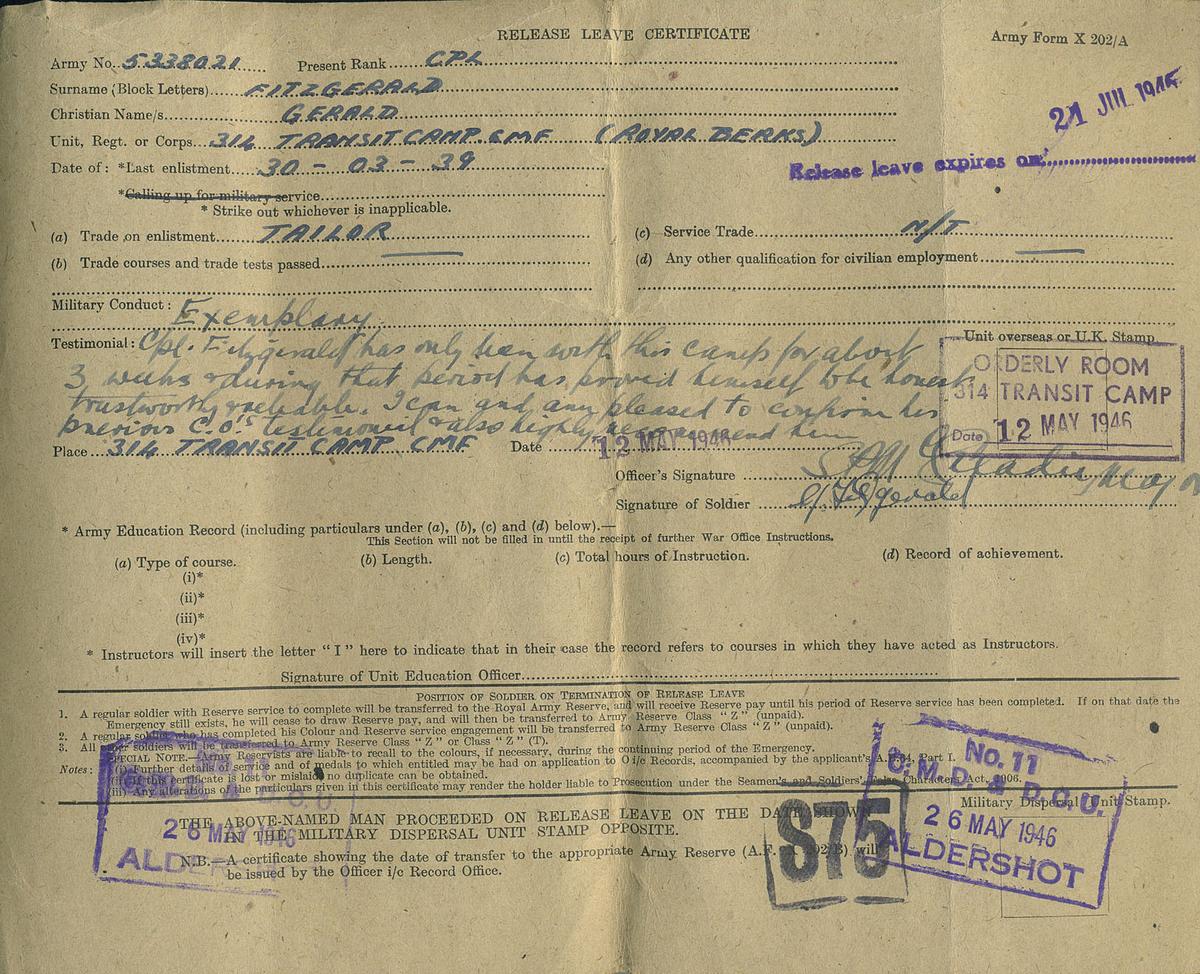 RELEASE LEAVE CERTIFICATE
Army Form X 202/A
Army No. 5338021 Present Rank CPL
Surname (Block Letters) FITZGERALD
Christian Name/s GERALD
Unit, Regt. or Corps 314 TRANSIT CAMP. CMF (ROYAL BERKS)
21 JUL 1946
Release leave expires on
Date of : *Last enlistment 30 - 03 - 39
*Calling up for military service
* Strike out whichever is inapplicable.
(a) Trade on enlistment TAILOR
(c) Service Trade N/T
(b) Trade courses and trade tests passed
(d) Any other qualification for civilian employment
Military Conduct : Exemplary
Testimonial : Cpl. Fitzgerald has only been with this camp for about
3 weeks & during that period has proved himself to be honest
trustworthy & reliable. I can and am pleased to confirm his
previous C.O's testimonial & also highly recommend him
Unit overseas or U.K. Stamp
ORDERLY ROOM
314 TRANSIT CAMP
Date 12 MAY 1946
Place 314 TRANSIT CAMP CMF Date 12 MAY 1946
Officer's Signature Major
Signature of Soldier G. Fitzgerald
* Army Education Record (including particulars under (a), (b), (c) and (d) below).—
This Section will not be filled in until the receipt of further War Office Instructions.
(a) Type of course. (b) Length. (c) Total hours of Instruction. (d) Record of achievement.
(i)*
(ii)*
(iii)*
(iv)*
* Instructors will insert the letter “ I ” here to indicate that in their case the record refers to courses in which they have acted as Instructors.
Signature of Unit Education Officer
POSITION OF SOLDIER ON TERMINATION OF RELEASE LEAVE
1. A regular soldier with Reserve service to complete will be transferred to the Royal Army Reserve, and will receive Reserve pay until his period of Reserve service has been completed. If on that date the
Emergency still exists, he will cease to draw Reserve pay, and will then be transferred to Army Reserve Class “ Z ” (unpaid).
2. A regular soldier who has completed his Colour and Reserve service engagement will be transferred to Army Reserve Class “ Z ” (unpaid).
3. All other soldiers will be transferred to Army Reserve Class “ Z ” or Class “ Z ” (T).
SPECIAL NOTE.—Army Reservists are liable to recall to the colours, if necessary, during the continuing period of the Emergency.
Notes : (i) Further details of service and of medals to which entitled may be had on application to O i/c Records, accompanied by the applicant's A.B. 64, Part I.
(ii) If this certificate is lost or mislaid no duplicate can be obtained.
(iii) Any alterations of the particulars given in this certificate may render the holder liable to Prosecution under the Seamen's and Soldiers' False Characters Act, 1906.
Military Dispersal Unit Stamp.
THE ABOVE-NAMED MAN PROCEEDED ON RELEASE LEAVE ON THE DATE SHOWN
IN THE MILITARY DISPERSAL UNIT STAMP OPPOSITE.
N.B.—A certificate showing the date of transfer to the appropriate Army Reserve (A.F. X 202/B) will
be issued by the Officer i/c Record Office.
26 MAY 1946
S75
No. 11
C. M. D. & D.C.U.
26 MAY 1946
ALDERSHOT